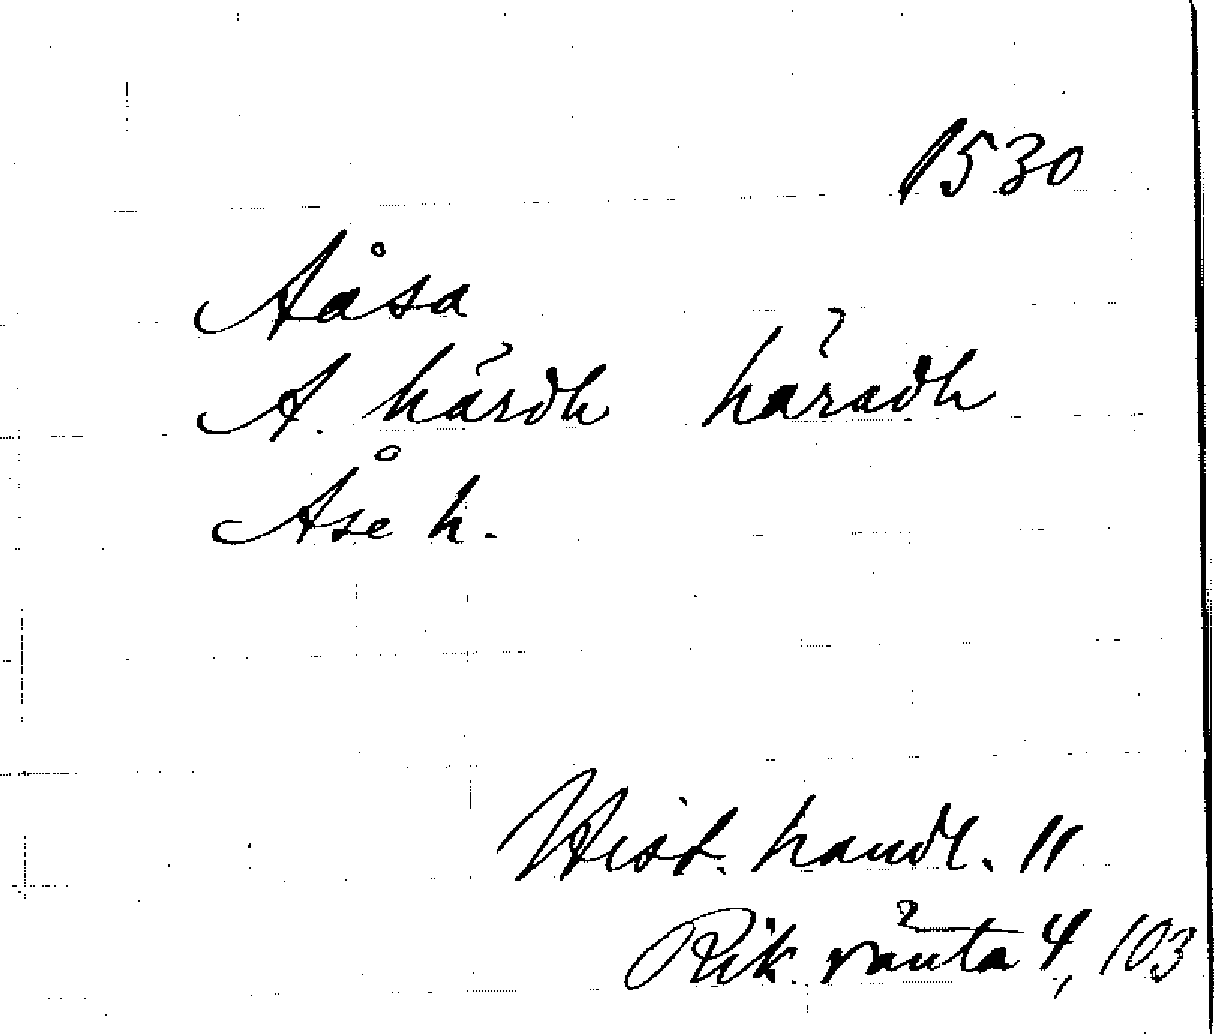 1530
Aåsa
A. härdh häradh
Åse h.
Hist. handl. 11
Rik. ränta 4, 103